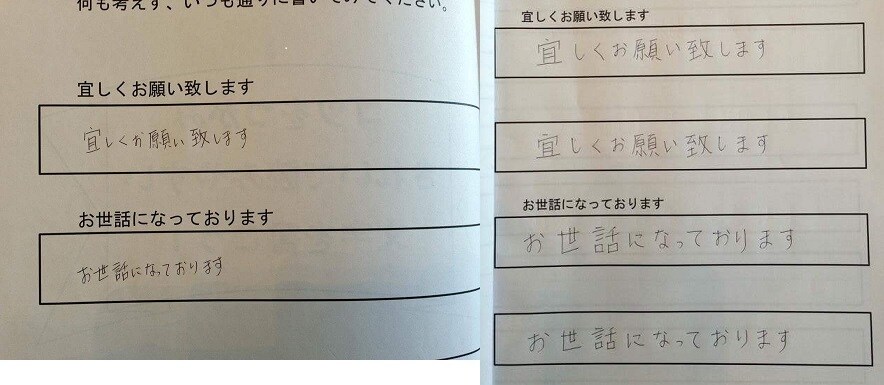 何も考えず、いつも通りに書いてみてください。
宜しくお願い致します
宜しくお願い致します
お世話になっております
お世話になっております
宜しくお願い致します
宜しくお願い致します
宜しくお願い致します
お世話になっております
お世話になっております
お世話になっております